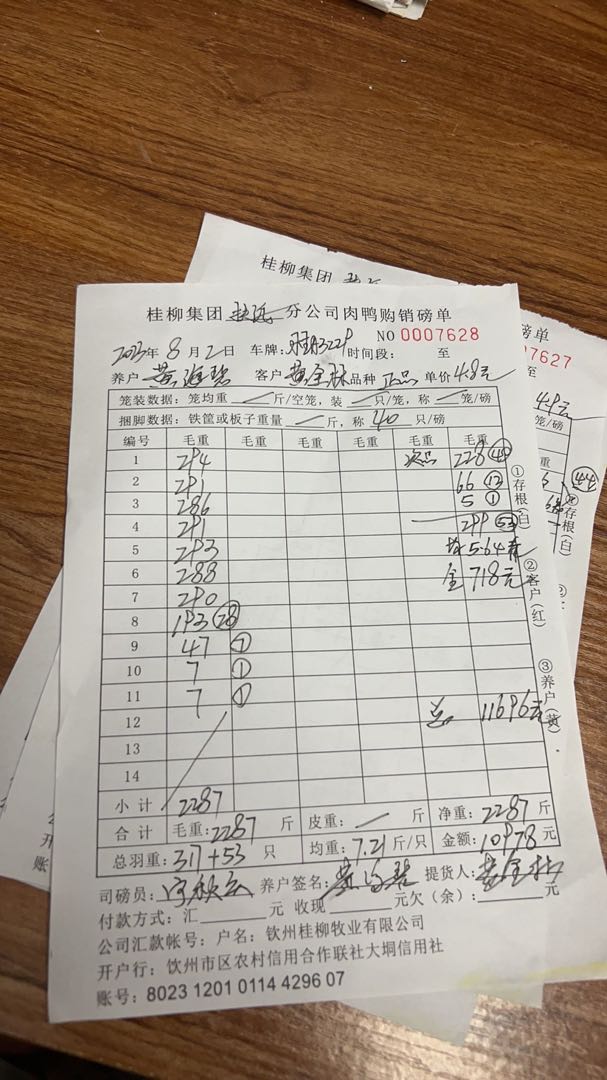 桂柳集团
桂柳集团 分公司肉鸭购销磅单
磅单
NO 0007628
7627
2023年 8 月 2 日 车牌: 时间段: 至
至
养户 黄 客户 黄全林 品种 正品 单价 4.8元
4.9元
笼装数据: 笼均重 / 斤/空笼, 装 / 只/笼, 称 / 笼/磅
笼/磅
捆脚数据: 铁筐或板子重量 / 斤, 称 40 只/磅
编号 毛重 毛重 毛重 毛重 毛重 毛重
1 294 次品 228 44
2 291 66 12
3 286 5 1
4 291 299 53
5 293 均5.64斤
6 288 金718元
7 290
8 193 28
9 47 7
10 7 1
11 7 1
12 总 11696元
13
14
小计 2287
合计 毛重: 2287 斤 皮重: / 斤 净重: 2287 斤
总羽重: 317+53 只 均重: 7.21 斤/只 金额: 10978 元
司磅员: 养户签名: 提货人: 黄全林
付款方式: 汇 元 收现 元欠(余): 元
公司汇款帐号: 户名: 钦州桂柳牧业有限公司
开户行: 钦州市区农村信用合作联社大垌信用社
账号: 8023 1201 0114 4296 07
①存根(白)
②客户(红)
③养户(黄)
44
存根(白)